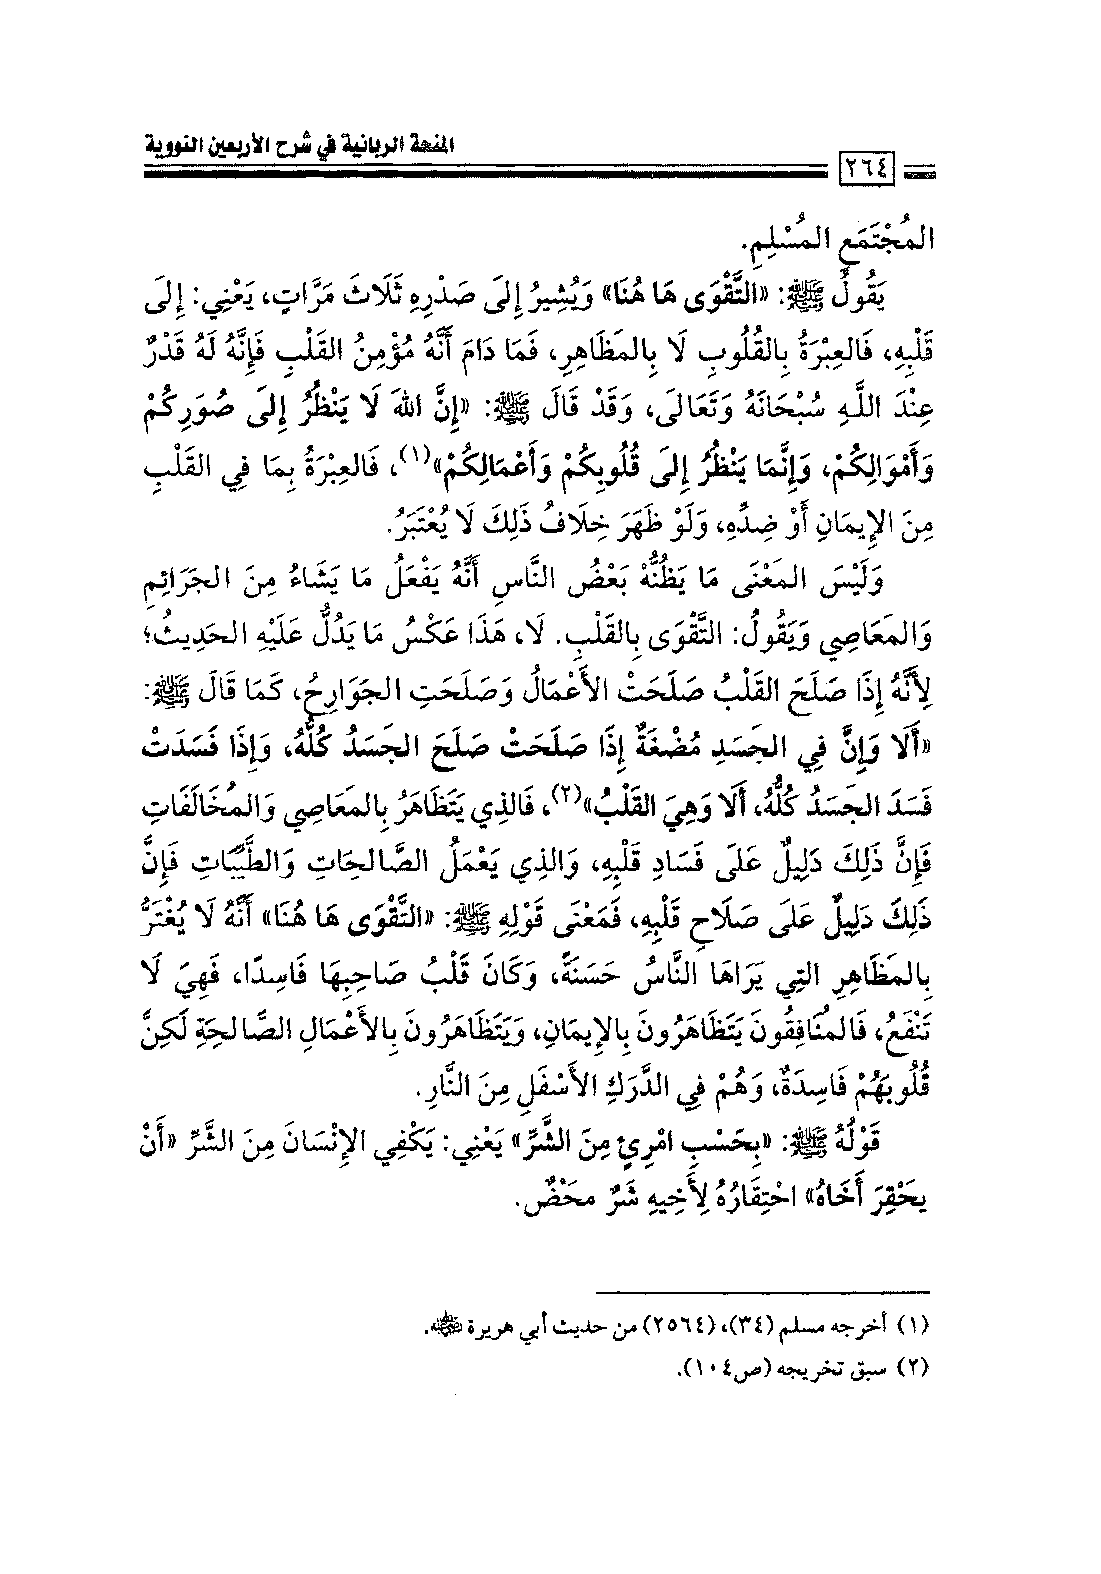 المنحة الربانية في شرح الأربعين النووية
٢٦٤
المُجْتَمَعِ المُسْلِمِ.
يَقُولُ ﷺ: «التَّقْوَى هَا هُنَا» وَيُشِيرُ إِلَى صَدْرِهِ ثَلَاثَ مَرَّاتٍ، يَعْنِي: إِلَى
قَلْبِهِ، فَالعِبْرَةُ بِالقُلُوبِ لَا بِالمَظَاهِرِ، فَمَا دَامَ أَنَّهُ مُؤْمِنُ القَلْبِ فَإِنَّهُ لَهُ قَدْرٌ
عِنْدَ اللَّهِ سُبْحَانَهُ وَتَعَالَى، وَقَدْ قَالَ ﷺ: «إِنَّ اللهَ لَا يَنْظُرُ إِلَى صُوَرِكُمْ
وَأَمْوَالِكُمْ، وَإِنَّمَا يَنْظُرُ إِلَى قُلُوبِكُمْ وَأَعْمَالِكُمْ»(١)، فَالعِبْرَةُ بِمَا فِي القَلْبِ
مِنَ الإِيمَانِ أَوْ ضِدِّهِ، وَلَوْ ظَهَرَ خِلَافُ ذَلِكَ لَا يُعْتَبَرُ.
وَلَيْسَ المَعْنَى مَا يَظُنُّهُ بَعْضُ النَّاسِ أَنَّهُ يَفْعَلُ مَا يَشَاءُ مِنَ الجَرَائِمِ
وَالمَعَاصِي وَيَقُولُ: التَّقْوَى بِالقَلْبِ. لَا، هَذَا عَكْسُ مَا يَدُلُّ عَلَيْهِ الحَدِيثُ؛
لِأَنَّهُ إِذَا صَلَحَ القَلْبُ صَلَحَتْ الأَعْمَالُ وَصَلَحَتِ الجَوَارِحُ، كَمَا قَالَ ﷺ:
«أَلَا وَإِنَّ فِي الجَسَدِ مُضْغَةٌ إِذَا صَلَحَتْ صَلَحَ الجَسَدُ كُلُّهُ، وَإِذَا فَسَدَتْ
فَسَدَ الجَسَدُ كُلُّهُ، أَلَا وَهِيَ القَلْبُ»(٢)، فَالذِي يَتَظَاهَرُ بِالمَعَاصِي وَالمُخَالَفَاتِ
فَإِنَّ ذَلِكَ دَلِيلٌ عَلَى فَسَادِ قَلْبِهِ، وَالذِي يَعْمَلُ الصَّالِحَاتِ وَالطَّيِّبَاتِ فَإِنَّ
ذَلِكَ دَلِيلٌ عَلَى صَلَاحِ قَلْبِهِ، فَمَعْنَى قَوْلِهِ ﷺ: «التَّقْوَى هَا هُنَا» أَنَّهُ لَا يُغْتَرُّ
بِالمَظَاهِرِ التِي يَرَاهَا النَّاسُ حَسَنَةً، وَكَانَ قَلْبُ صَاحِبِهَا فَاسِدًا، فَهِيَ لَا
تَنْفَعُ، فَالمُنَافِقُونَ يَتَظَاهَرُونَ بِالإِيمَانِ، وَيَتَظَاهَرُونَ بِالأَعْمَالِ الصَّالِحَةِ لَكِنَّ
قُلُوبَهُمْ فَاسِدَةٌ، وَهُمْ فِي الدَّرَكِ الأَسْفَلِ مِنَ النَّارِ.
قَوْلُهُ ﷺ: «بِحَسْبِ امْرِئٍ مِنَ الشَّرِّ» يَعْنِي: يَكْفِي الإِنْسَانَ مِنَ الشَّرِّ «أَنْ
يَحْقِرَ أَخَاهُ» احْتِقَارُهُ لِأَخِيهِ شَرٌّ مَحْضٌ.
(١) أخرجه مسلم (٣٤)، (٢٥٦٤) من حديث أبي هريرة رضي الله عنه.
(٢) سبق تخريجه (ص١٠٤).